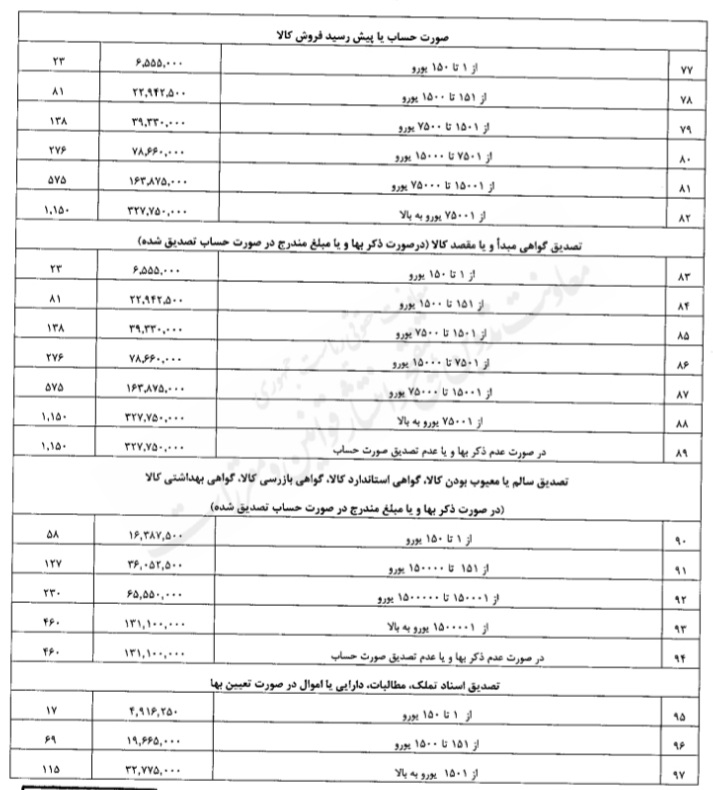 صورت حساب یا پیش رسید فروش کالا
۷۷ از ۱ تا ۱۵۰ یورو ۶,۵۵۵,۰۰۰ ۲۳
۷۸ از ۱۵۱ تا ۱۵۰۰ یورو ۲۲,۹۴۲,۵۰۰ ۸۱
۷۹ از ۱۵۰۱ تا ۷۵۰۰ یورو ۳۹,۳۳۰,۰۰۰ ۱۳۸
۸۰ از ۷۵۰۱ تا ۱۵۰۰۰ یورو ۷۸,۶۶۰,۰۰۰ ۲۷۶
۸۱ از ۱۵۰۰۱ تا ۷۵۰۰۰ یورو ۱۶۳,۸۷۵,۰۰۰ ۵۷۵
۸۲ از ۷۵۰۰۱ یورو به بالا ۳۲۷,۷۵۰,۰۰۰ ۱,۱۵۰
تصدیق گواهی مبدأ و یا مقصد کالا (درصورت ذکر بها و یا مبلغ مندرج در صورت حساب تصدیق شده)
۸۳ از ۱ تا ۱۵۰ یورو ۶,۵۵۵,۰۰۰ ۲۳
۸۴ از ۱۵۱ تا ۱۵۰۰ یورو ۲۲,۹۴۲,۵۰۰ ۸۱
۸۵ از ۱۵۰۱ تا ۷۵۰۰ یورو ۳۹,۳۳۰,۰۰۰ ۱۳۸
۸۶ از ۷۵۰۱ تا ۱۵۰۰۰ یورو ۷۸,۶۶۰,۰۰۰ ۲۷۶
۸۷ از ۱۵۰۰۱ تا ۷۵۰۰۰ یورو ۱۶۳,۸۷۵,۰۰۰ ۵۷۵
۸۸ از ۷۵۰۰۱ یورو به بالا ۳۲۷,۷۵۰,۰۰۰ ۱,۱۵۰
۸۹ در صورت عدم ذکر بها و یا عدم تصدیق صورت حساب ۳۲۷,۷۵۰,۰۰۰ ۱,۱۵۰
تصدیق سالم یا معیوب بودن کالا، گواهی استاندارد کالا، گواهی بازرسی کالا، گواهی بهداشتی کالا
(در صورت ذکر بها و یا مبلغ مندرج در صورت حساب تصدیق شده)
۹۰ از ۱ تا ۱۵۰ یورو ۱۶,۳۸۷,۵۰۰ ۵۸
۹۱ از ۱۵۱ تا ۱۵۰۰۰۰ یورو ۳۶,۰۵۲,۵۰۰ ۱۲۷
۹۲ از ۱۵۰۰۰۱ تا ۱۵۰۰۰۰۰ یورو ۶۵,۵۵۰,۰۰۰ ۲۳۰
۹۳ از ۱۵۰۰۰۰۱ یورو به بالا ۱۳۱,۱۰۰,۰۰۰ ۴۶۰
۹۴ در صورت عدم ذکر بها و یا عدم تصدیق صورت حساب ۱۳۱,۱۰۰,۰۰۰ ۴۶۰
تصدیق اسناد تملک، مطالبات، دارایی یا اموال در صورت تعیین بها
۹۵ از ۱ تا ۱۵۰ یورو ۴,۹۱۶,۲۵۰ ۱۷
۹۶ از ۱۵۱ تا ۱۵۰۰ یورو ۱۹,۶۶۵,۰۰۰ ۶۹
۹۷ از ۱۵۰۱ یورو به بالا ۳۲,۷۷۵,۰۰۰ ۱۱۵
معاونت حقوقی ریاست جمهوری
معاونت تدوین، تنقیح و انتشار قوانین و مقررات